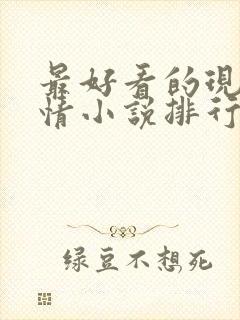 最好看的現
情小說排行
绿豆不想死